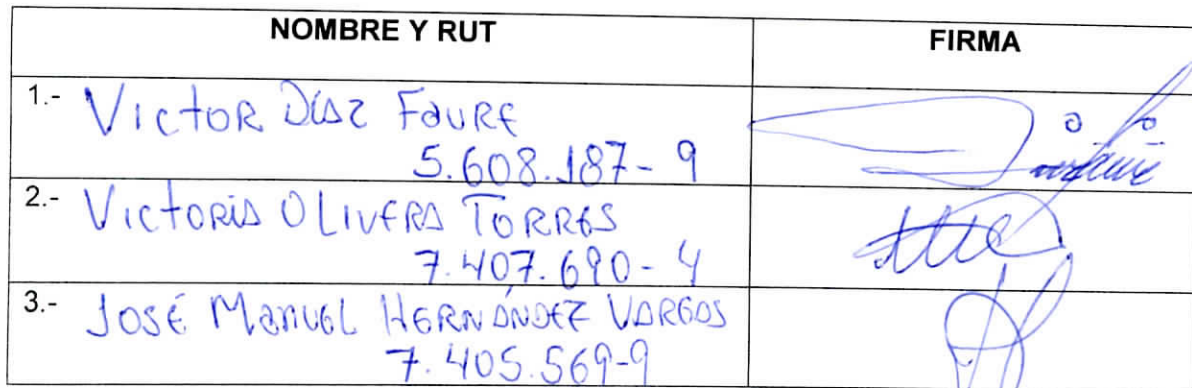 NOMBRE Y RUT FIRMA
1.- Victor Díaz Faure
5.608.187-9
2.- Victoria Olivera Torres
7.407.690-4
3.- José Manuel Hernández Vargas
7.405.569-9